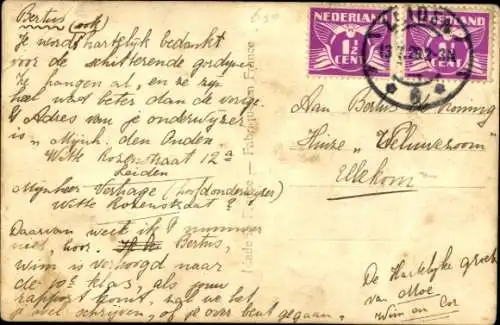 Bertus (ook)
Je wordt hartelijk bedankt
voor de schitterende gordijnen
Ze hangen al, en ze zijn
heel wat beter dan de vorige.
't Adres van je onderwijzer
is "Mijnh. den Ouden.
Witte Rozenstraat 12a
Leiden
Mijnheer Verhage (hoofdonderwijzer)
Witte Rozenstraat ?
Daarvan weet ik 't nummer
niet, hoor. Bertus,
Wim is verhoogd naar
de klas, als jouw
rapport komt, zal ze het
je wel schrijven, of je over bent gegaan.
NEDERLAND
1½
CENT
NEDERLAND
CENT
LEIDEN
6
Made in France - Fabriqué en France
Aan Bertus de Koning
Huize "Veluwezoom
Ellekom
De Hartelijke groeten
van Moe
Wim en Cor